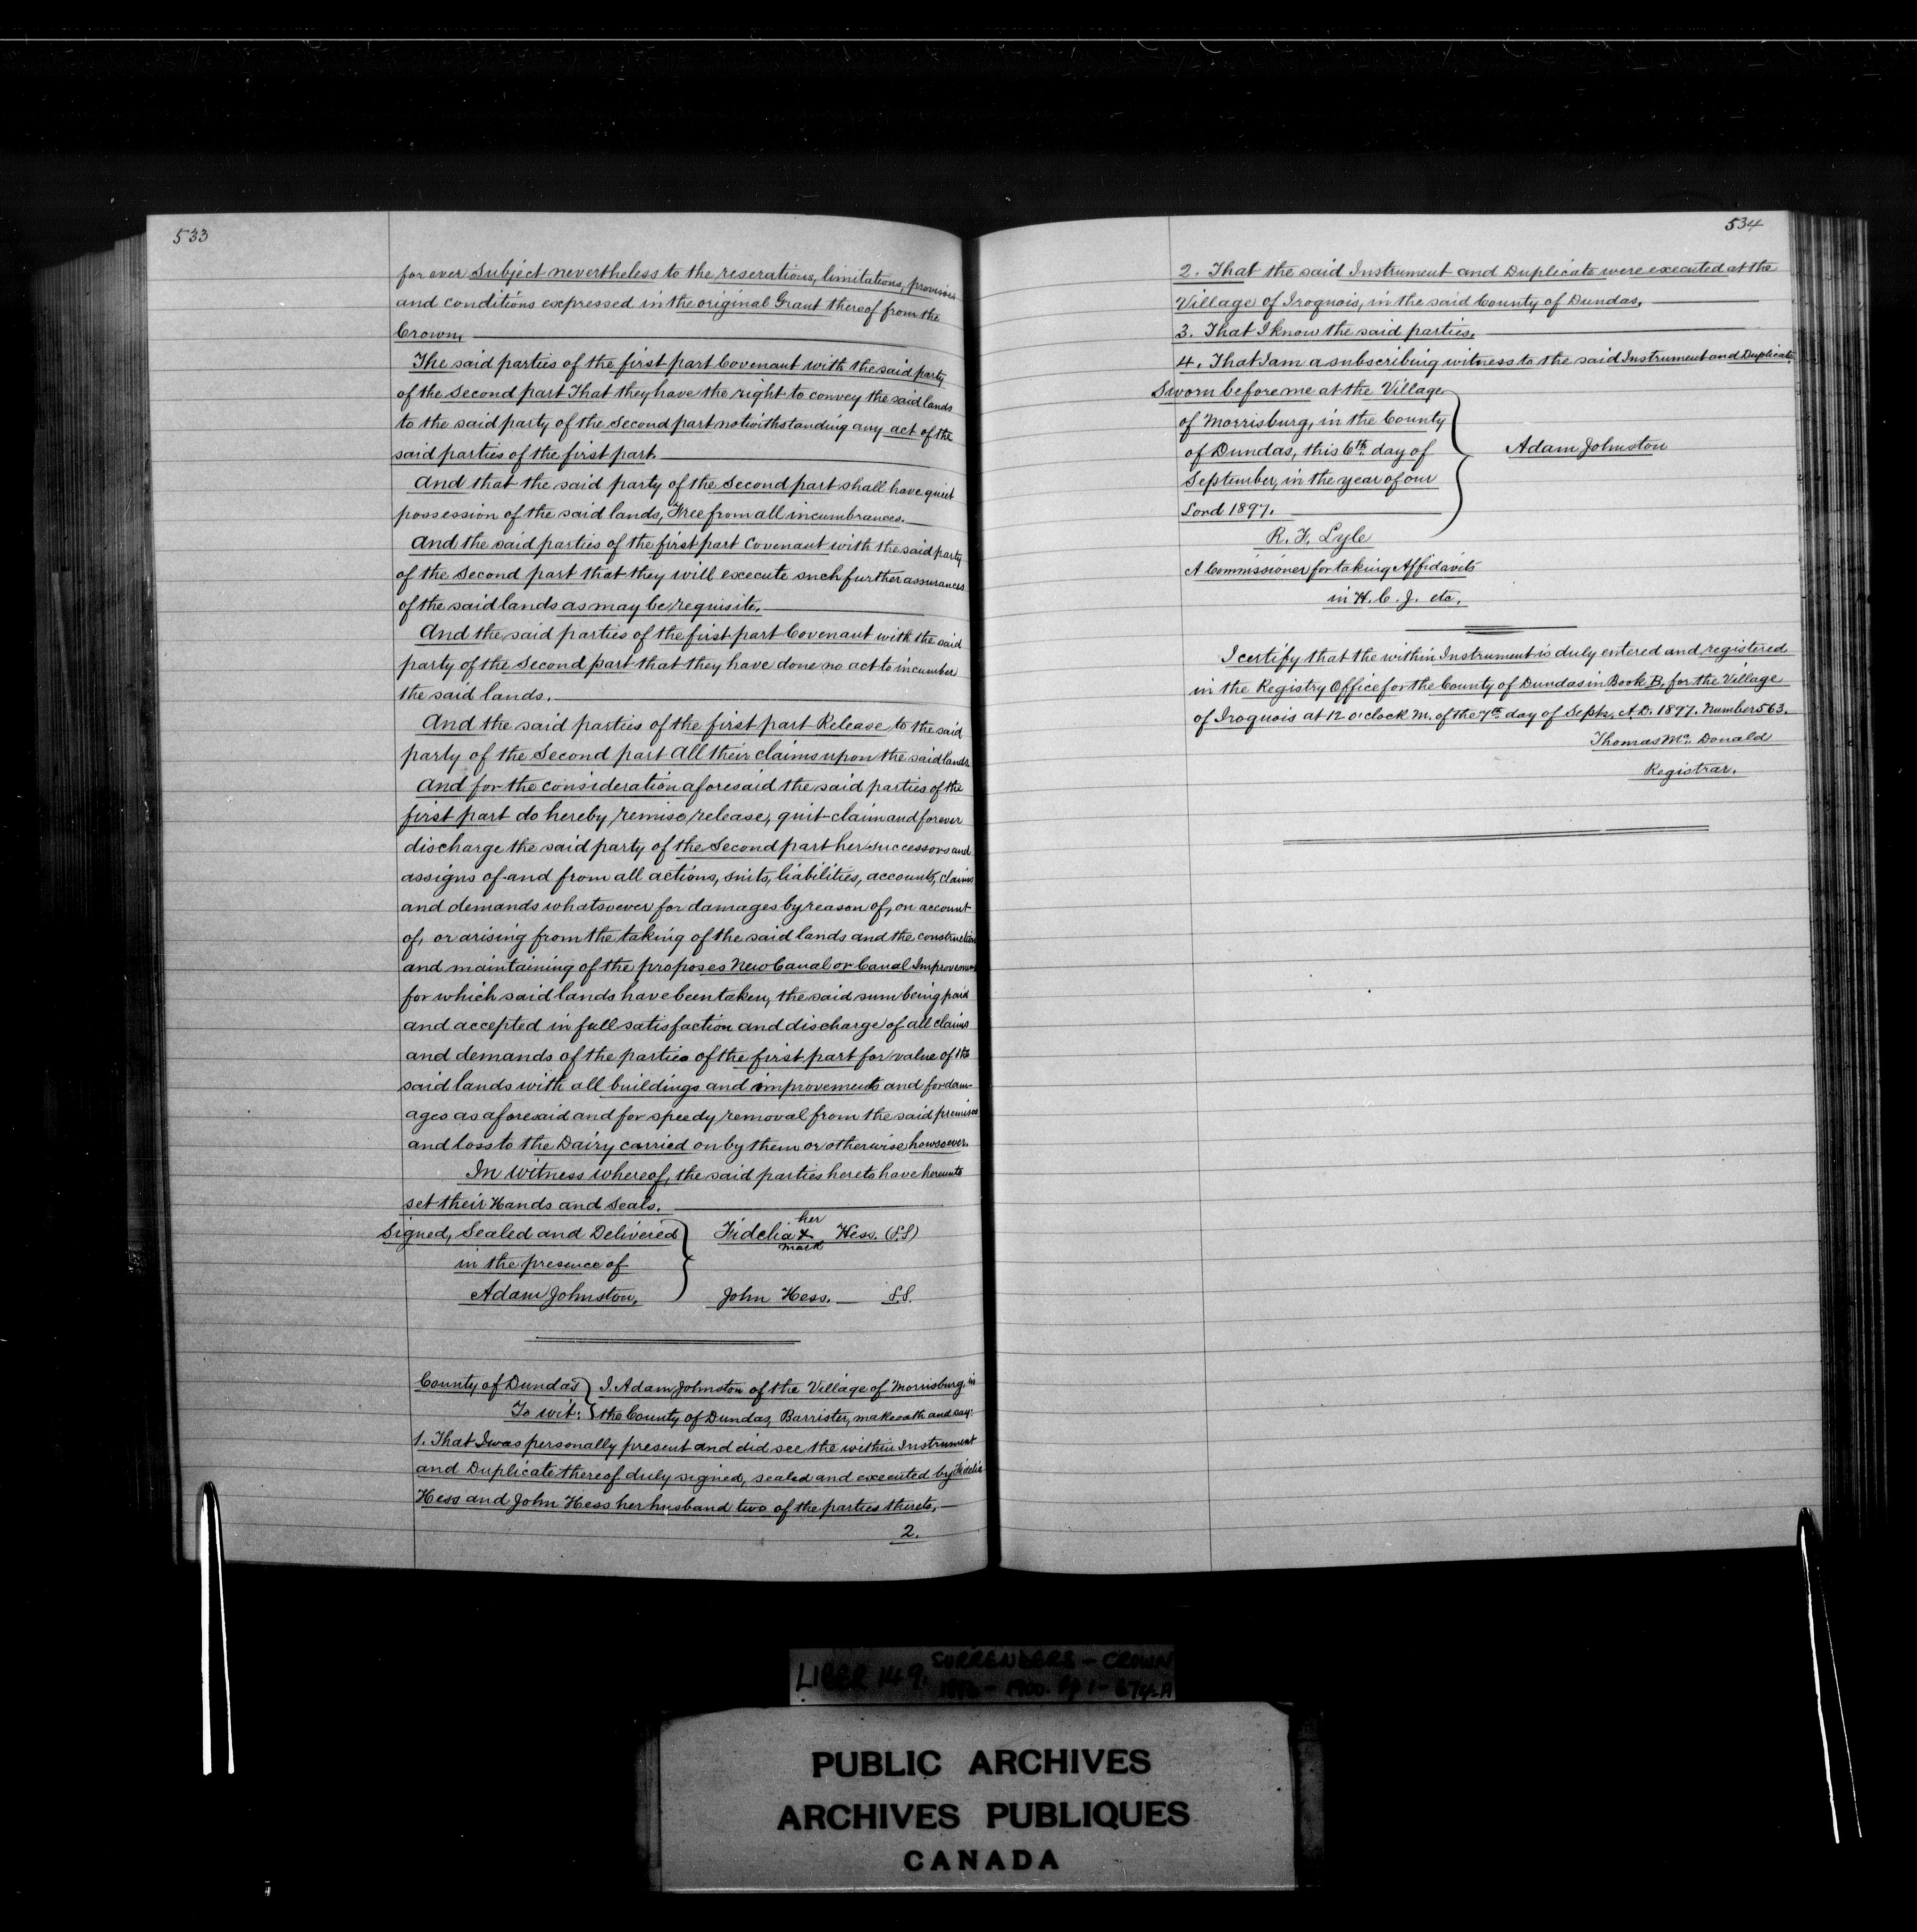 533
for ever Subject nevertheless to the reserations, limitations, provisoes
and conditions expressed in the original Grant thereof from the
Crown,
The said parties of the first part Covenant with the said party
of the Second part That they have the right to convey the said lands
to the said party of the Second part notwithstanding any act of the
said parties of the first part.
And that the said party of the Second part shall have quiet
possession of the said lands, Free from all incumbrances.
And the said parties of the first part Covenant with the said party
of the Second part that they will execute such further assurances
of the said lands as may be requisite.
And the said parties of the first part Covenant with the said
party of the Second part that they have done no act to incumber
the said lands.
And the said parties of the first part Release to the said
party of the Second part All their claims upon the said lands.
And for the consideration aforesaid the said parties of the
first part do hereby remise, release, quit-claim and forever
discharge the said party of the Second part her successors and
assigns of and from all actions, suits, liabilities, accounts, claims
and demands whatsoever for damages by reason of, on account
of, or arising from the taking of the said lands and the construction
and maintaining of the proposes New Canal or Canal Improvement
for which said lands have been taken, the said sum being paid
and accepted in full satisfaction and discharge of all claims
and demands of the parties of the first part for value of the
said lands with all buildings and improvements and for dam-
ages as aforesaid and for speedy removal from the said premises
and loss to the Dairy carried on by them or otherwise howsoever.
In Witness whereof, the said parties hereto have hereunto
set their Hands and Seals.
Signed, Sealed and Delivered
in the presence of
Adam Johnston,
her
Fidelia X Hess. (L.S)
mark
John Hess. L.S.
County of Dundas
To wit:
I, Adam Johnston of the Village of Morrisburg in
the County of Dundas, Barrister, make oath and say:
1. That I was personally present and did see the within Instrument
and Duplicate thereof duly signed, sealed and executed by Fidelia
Hess and John Hess her husband two of the parties thereto,
2.
534
2. That the said Instrument and Duplicate were executed at the
Village of Iroquois, in the said County of Dundas,
3. That I know the said parties.
4. That I am a subscribing witness to the said Instrument and Duplicate.
Sworn before me at the Village
of Morrisburg, in the County
of Dundas, this 6th day of
September, in the year of our
Lord 1897.
Adam Johnston
R. F. Lyle
A Commissioner for taking Affidavits
in H. C. J. etc.
I certify that the within Instrument is duly entered and registered
in the Registry Office for the County of Dundas in Book B, for the Village
of Iroquois at 12 o'clock M. of the 7th day of Septr, A.D. 1897. Number 563.
Thomas Mc Donald
Registrar.
LIBER 149. SURRENDERS - CROWN
1900. Pp 1 - 674-A
PUBLIC ARCHIVES
ARCHIVES PUBLIQUES
CANADA